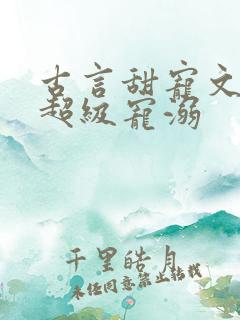 古言甜宠文
超级宠溺
千里皓月
未经同意禁止转载